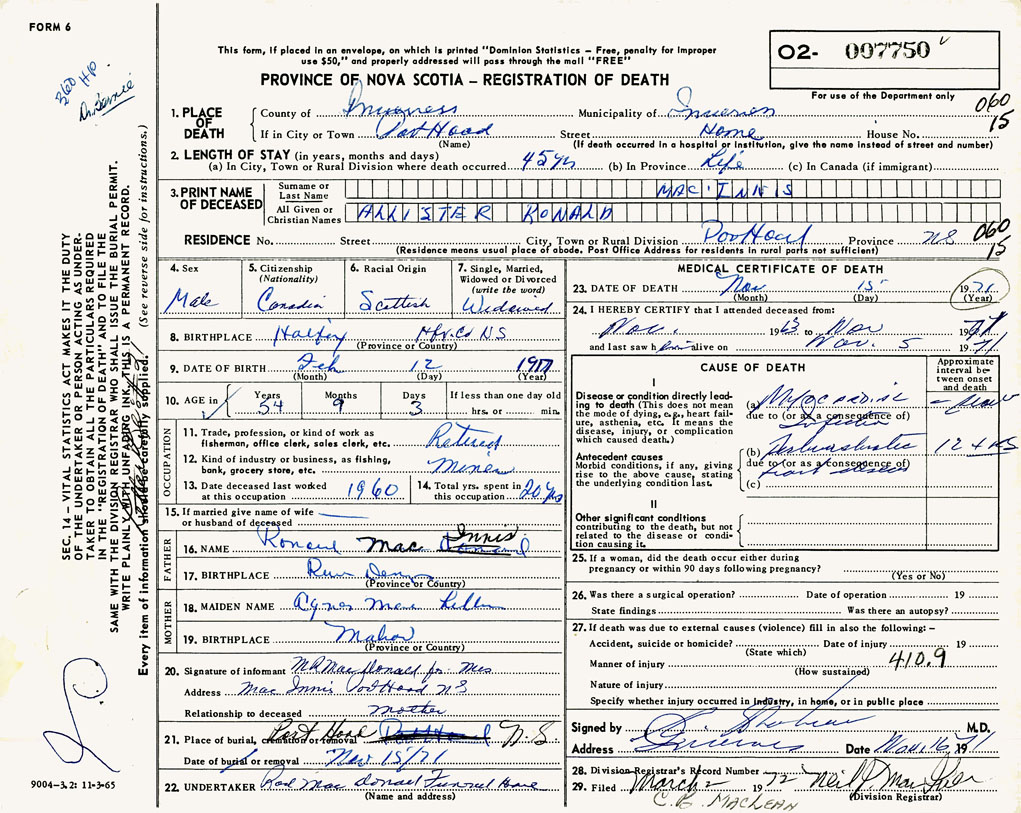 FORM 6
360 HP
This form, if placed in an envelope, on which is printed "Dominion Statistics – Free, penalty for improper
use $50," and properly addressed will pass through the mail "FREE"
PROVINCE OF NOVA SCOTIA – REGISTRATION OF DEATH
02- 007750
For use of the Department only
060
15
1. PLACE OF DEATH
County of Inverness Municipality of Inverness
If in City or Town Port Hood Street Home House No.
(Name) (If death occurred in a hospital or institution, give the name instead of street and number)
2. LENGTH OF STAY (in years, months and days)
(a) In City, Town or Rural Division where death occurred 45 yrs (b) In Province Life (c) In Canada (if immigrant)
3. PRINT NAME OF DECEASED
Surname or Last Name MAC INNIS
All Given or Christian Names ALLISTER RONALD
060
15
RESIDENCE No. Street City, Town or Rural Division Port Hood Province NS
(Residence means usual place of abode. Post Office Address for residents in rural parts not sufficient)
SEC. 14 – VITAL STATISTICS ACT MAKES IT THE DUTY
OF THE UNDERTAKER OR PERSON ACTING AS UNDER-
TAKER TO OBTAIN ALL THE PARTICULARS REQUIRED
IN THE "REGISTRATION OF DEATH" AND TO FILE THE
SAME WITH THE DIVISION REGISTRAR WHO SHALL ISSUE THE BURIAL PERMIT.
WRITE PLAINLY WITH UNFADING INK, THIS IS A PERMANENT RECORD.
Every item of information should be carefully supplied. (See reverse side for instructions.)
4. Sex
Male
5. Citizenship
(Nationality)
Canadian
6. Racial Origin
Scottish
7. Single, Married,
Widowed or Divorced
(write the word)
Widowed
8. BIRTHPLACE Halifax Hfx. Co NS
(Province or Country)
9. DATE OF BIRTH Feb 12 1917
(Month) (Day) (Year)
10. AGE in
Years 54
Months 9
Days 3
If less than one day old
hrs. or min.
OCCUPATION
11. Trade, profession, or kind of work as
fisherman, office clerk, sales clerk, etc. Retired
12. Kind of industry or business, as fishing,
bank, grocery store, etc. Miner
13. Date deceased last worked
at this occupation 1960
14. Total yrs. spent in
this occupation 20 yrs
15. If married give name of wife
or husband of deceased
FATHER
16. NAME Ronald Mac Innis
17. BIRTHPLACE
(Province or Country)
MOTHER
18. MAIDEN NAME Agnes
19. BIRTHPLACE Mabou
(Province or Country)
20. Signature of informant MacDonald for Mrs
Address Mac Innis Port Hood NS
Relationship to deceased Mother
21. Place of burial, cremation or removal Port Hood N.S
Date of burial or removal Nov 15/71
22. UNDERTAKER Rod Mac Donald Funeral Home
(Name and address)
MEDICAL CERTIFICATE OF DEATH
23. DATE OF DEATH Nov 15 1971
(Month) (Day) (Year)
24. I HEREBY CERTIFY that I attended deceased from:
Nov. 1963 to Nov 1971
and last saw him alive on Nov. 5 1971
CAUSE OF DEATH
Approximate
interval be-
tween onset
and death
I
Disease or condition directly lead-
ing to death (This does not mean
the mode of dying, e.g., heart fail-
ure, asthenia, etc. It means the
disease, injury, or complication
which caused death.)
(a) Myocardial
due to (or as a consequence of)
Infarction
Antecedent causes
Morbid conditions, if any, giving
rise to the above cause, stating
the underlying condition last.
(b)
due to (or as a consequence of)
heart disease
(c)
II
Other significant conditions
contributing to the death, but not
related to the disease or condi-
tion causing it.
25. If a woman, did the death occur either during
pregnancy or within 90 days following pregnancy?
(Yes or No)
26. Was there a surgical operation? Date of operation 19
State findings Was there an autopsy?
27. If death was due to external causes (violence) fill in also the following: –
Accident, suicide or homicide? Date of injury 19
(State which)
Manner of injury 410.9
(How sustained)
Nature of injury
Specify whether injury occurred in industry, in home, or in public place
Signed by M.D.
Address Inverness Date Nov. 16 1971
28. Division Registrar's Record Number
29. Filed March 2 1972 Neil J.
(Division Registrar)
C. B. MACLEAN
9004-3.2: 11-3-65